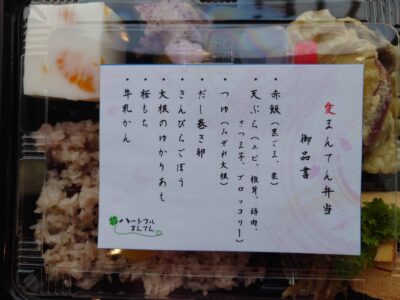 愛まんてん弁当
御品書
・赤飯(黒ごま、栗)
・天ぷら(エビ、椎茸、鶏肉、
さつま芋、ブロッコリー)
・つゆ(みぞれ大根)
・だし巻き卵
・きんぴらごぼう
・大根のゆかりあえ
・桜もち
・牛乳かん
ハートフル
まんてん